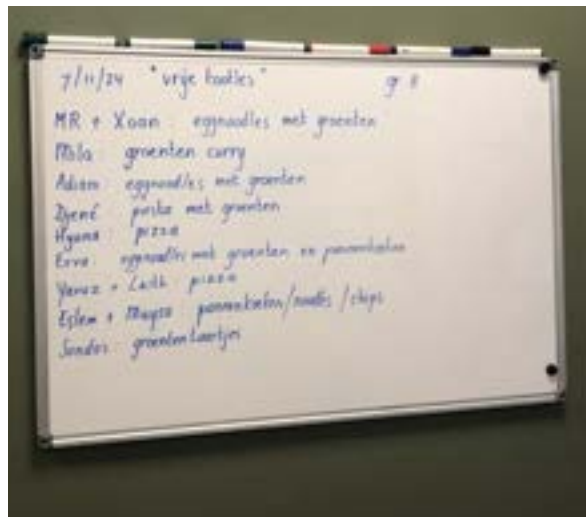 7/11/24 "vrije kookles" gr 8
MR + Xoan: eggnoodles met groenten
Mila: groenten curry
Adam: eggnoodles met groenten
Djené pasta met groenten
pizza
Erva: eggnoodles met groenten en pannenkoeken
Yavuz + pizza
Eslem + pannenkoeken/noodles/chips
groententaartjes